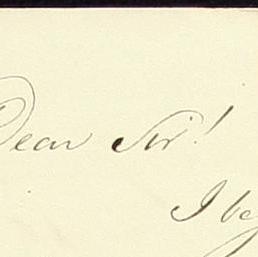 Dear Sir!
I be